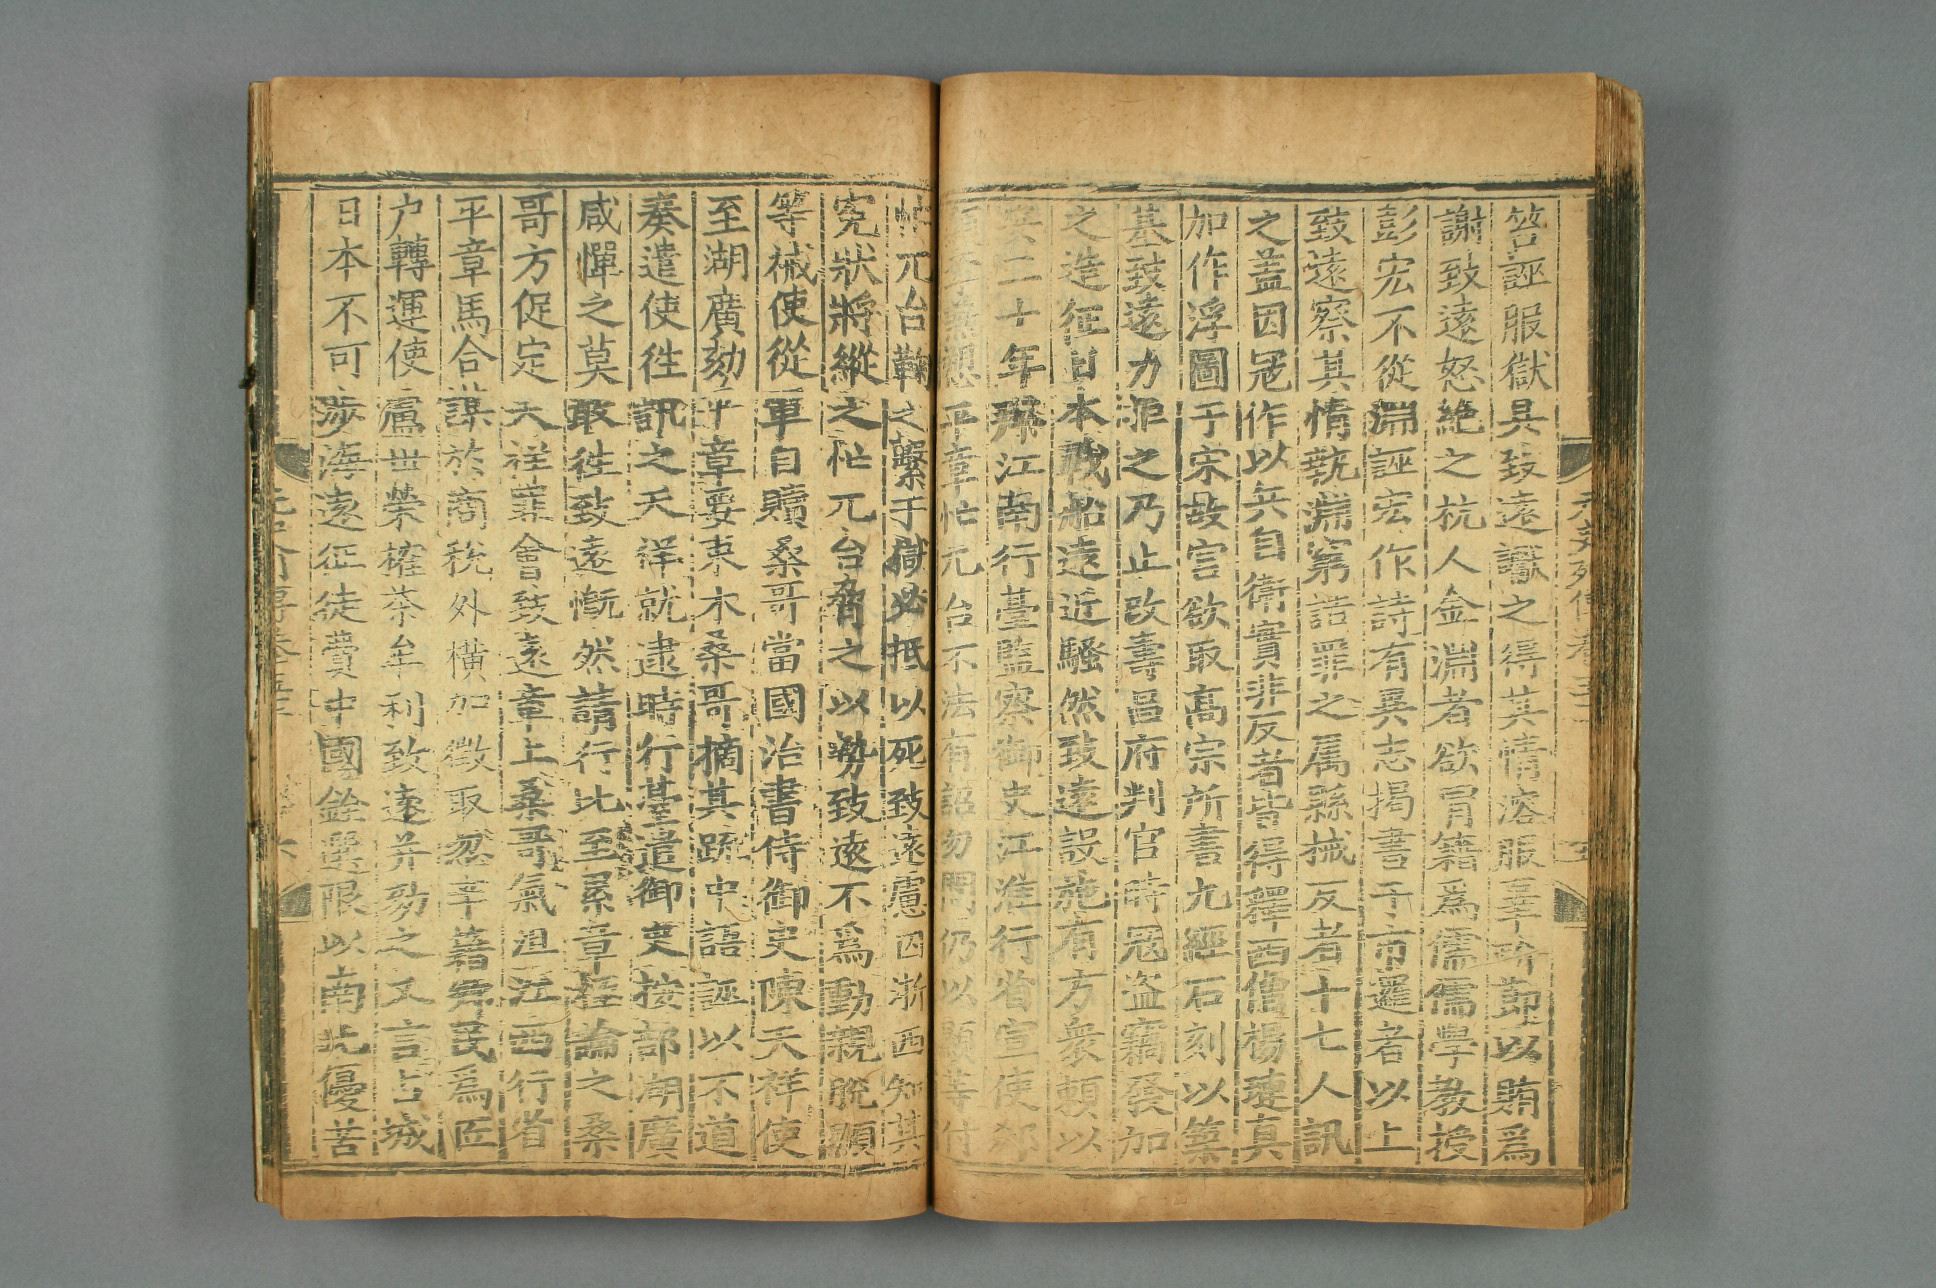 笞誣服獄具致遠讞之得其情溶服辜矜節以賄爲
謝致遠怒絶之杭人金淵者欲冐籍爲儒儒學教授
彭宏不從淵誣宏作詩有異志揭書于市邏者以上
致遠察其情執淵窮詰罪之属縣械反者十七人訊
之蓋因冦作以兵自衛實非反者皆得釋西僧楊璉真
加作浮圖于宋故宫欲取髙宗所書九經石刻以築
基致遠力拒之乃止改壽昌府判官時冦盗竊發加
之造征日本戰船遠近騷然致遠設施有方衆頼以
安二十年拜江南行臺監察御史江淮行省宣使郄
顯李謙愬平章忙兀台不法有詔勿問仍以顯等付
忙兀台鞫之繫于獄必抵以死致遠慮囚浙西知其
寃狀將縱之忙兀台脅之以勢致遠不爲動親脱顯
等械使從軍自贖桑哥當國治書侍御史陳天祥使
至湖廣劾平章要束木桑哥摘其䟽中語誣以不道
奏遣使徃訊之天祥就逮時行臺遣御史按部湖廣
咸憚之莫敢徃致遠慨然請行比至累章極論之桑
哥方促定天祥罪會致遠章上桑哥氣沮江西行省
平章馬合謀於商税外橫加徴取忽辛籍鄉民爲匠
户轉運使盧世榮榷茶牟利致遠并劾之又言占城
日本不可渉海遠征徒費中國銓選限以南北優苦